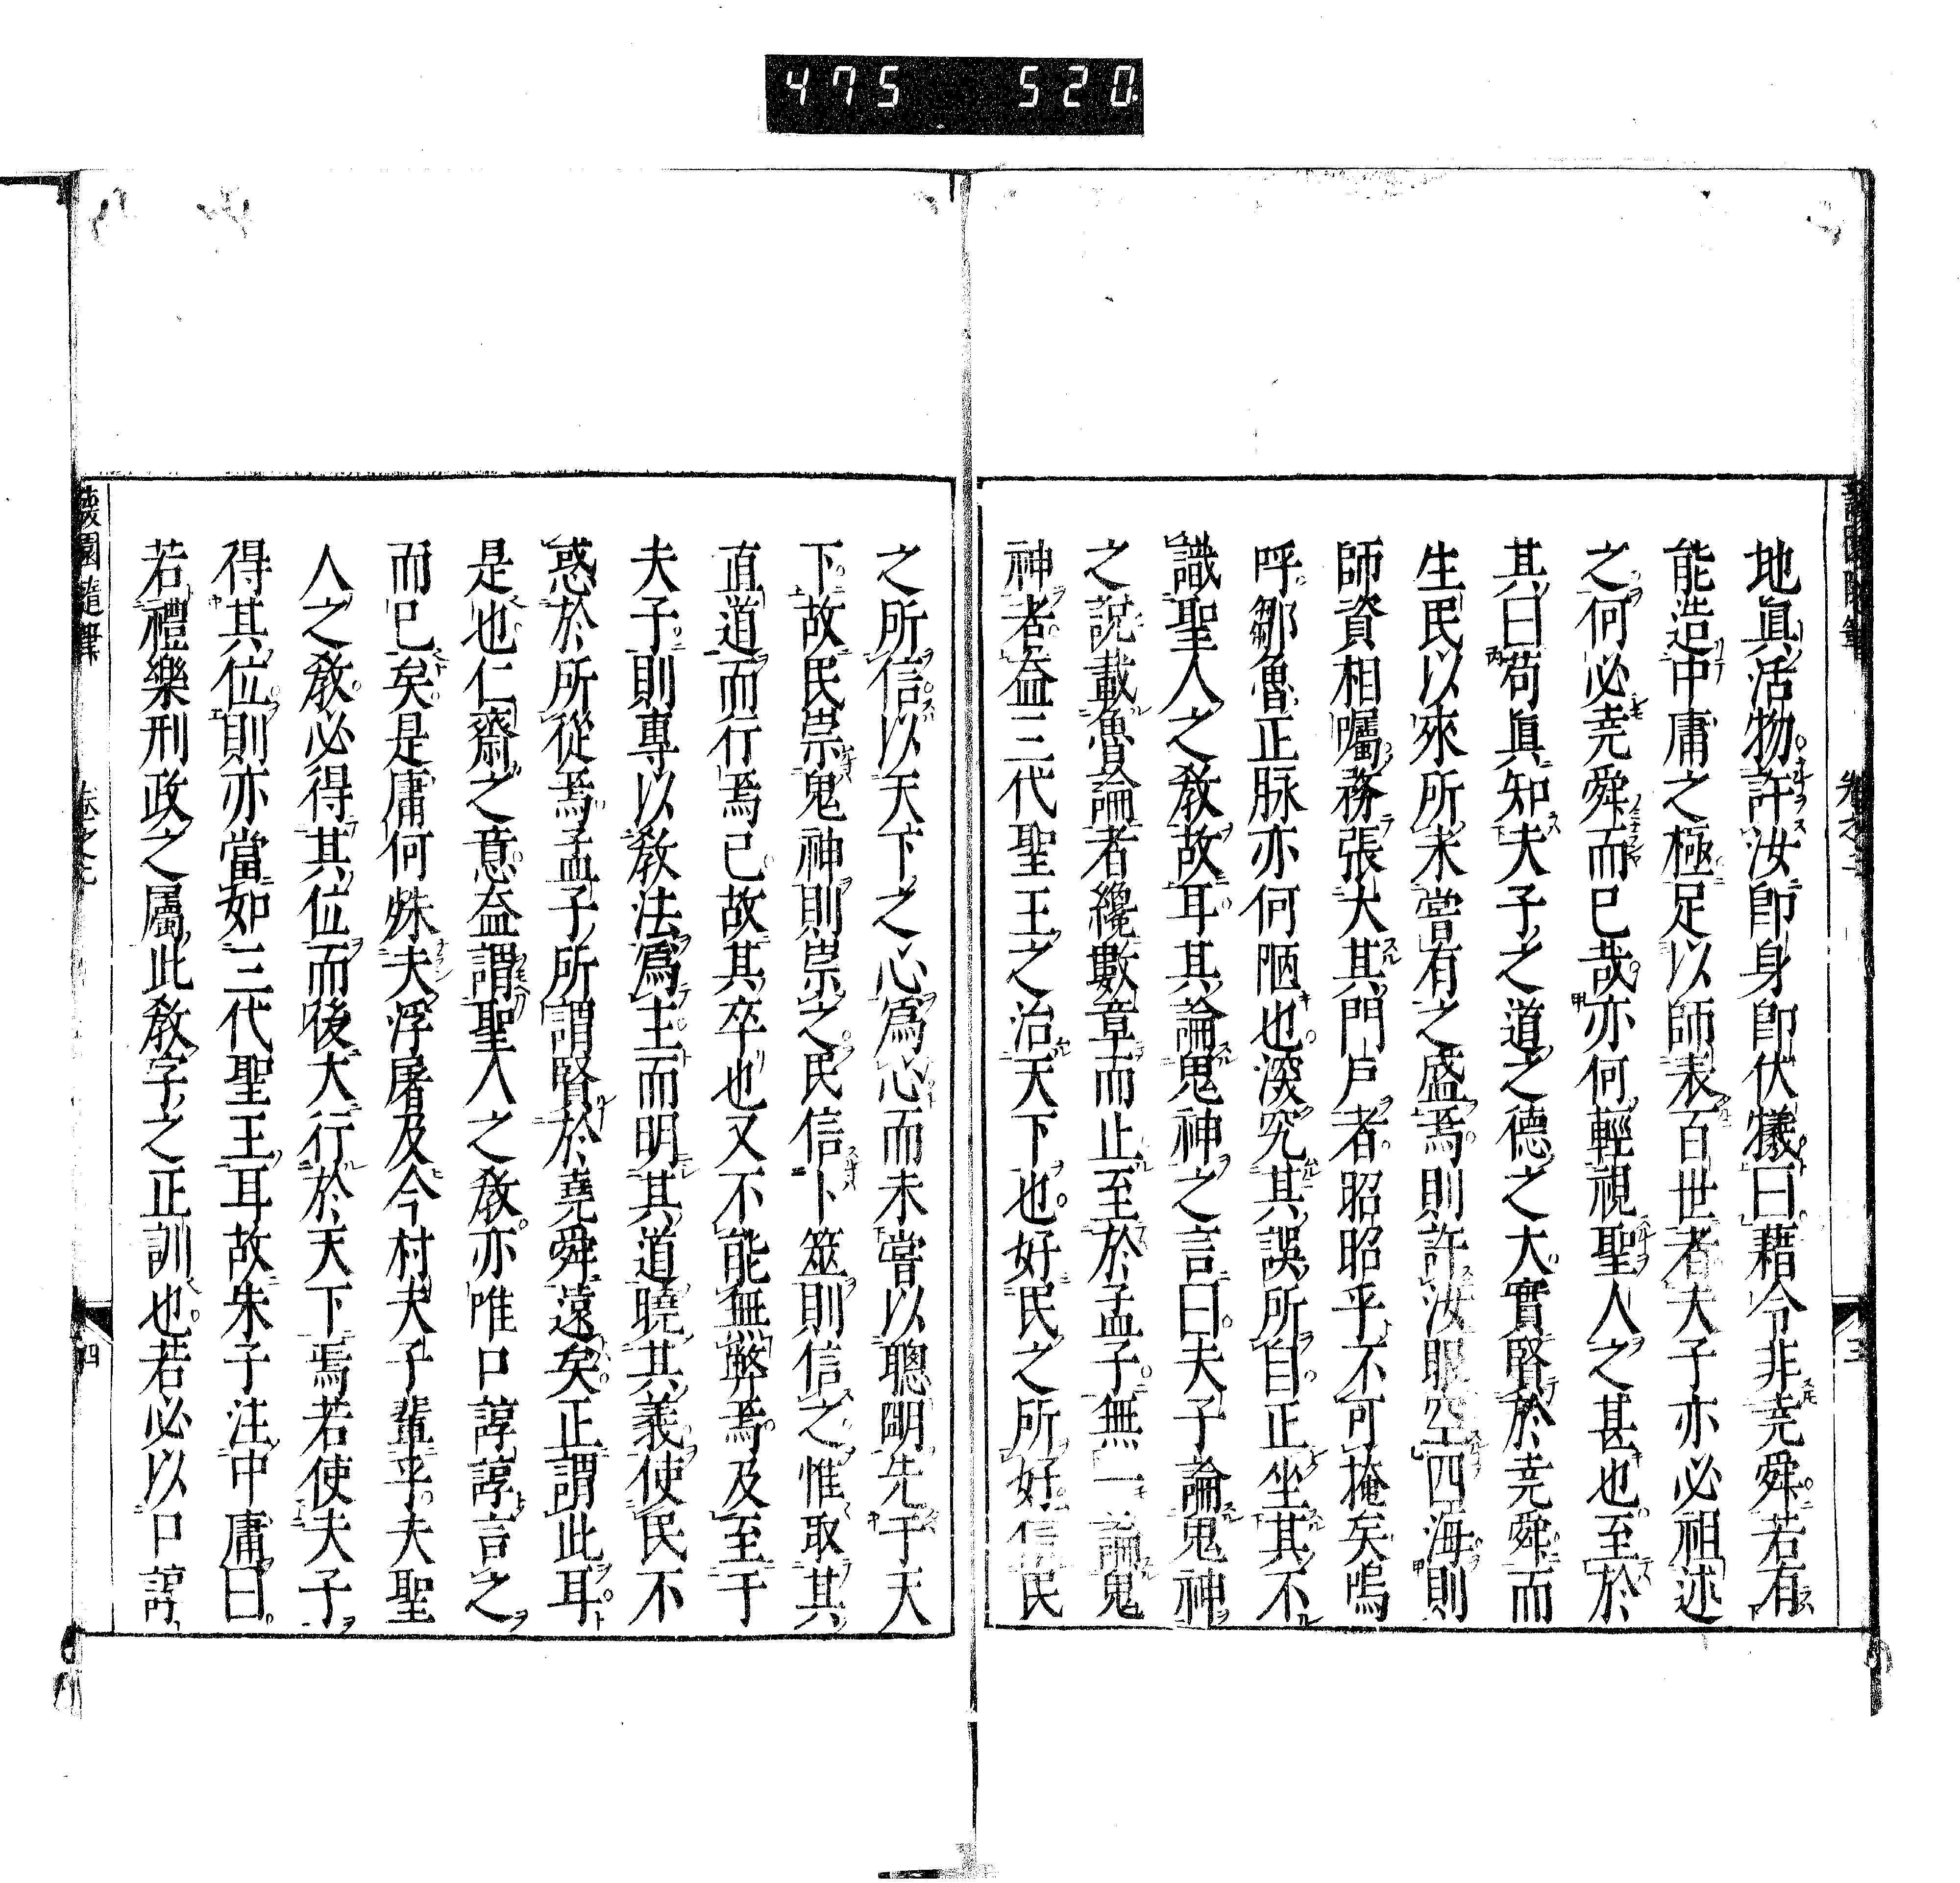 475 520
地眞活物許汝卽身卽伏犧曰藉令非堯舜若有
能造中庸之極足以師表百世者夫子亦必祖述
之何必堯舜而已哉亦何輕視聖人之甚也至於
其曰苟眞知夫子之道之德之大實賢於堯舜而
生民以來所未嘗有之盛焉則許汝眼空四海則
師資相囑務張大其門戶者昭昭乎不可掩矣嗚
呼鄒魯正脉亦何陋也深究其誤所自正坐其不
識聖人之敎故耳其論鬼神之言曰夫子論鬼神
之說載魯論者纔數章而止至於孟子無一論鬼
神者益三代聖王之治天下也好民之所好信民
之所信以天下之心爲心而未嘗以聰明先于天
下故民崇鬼神則崇之民信卜筮則信之惟取其
直道而行焉已故其卒也又不能無弊焉及至于
夫子則專以敎法爲主而明其道曉其義使民不
惑於所從焉孟子所謂賢於堯舜遠矣正謂此耳
是也仁齋之意益謂聖人之敎亦唯口諄諄言之
而已矣是庸何殊夫浮屠及今村夫子輩乎夫聖
人之敎必得其位而後大行於天下焉若使夫子
得其位則亦當如三代聖王耳故朱子注中庸曰
若禮樂刑政之屬此敎字之正訓也若必以口諄
園隨筆 卷之三 四